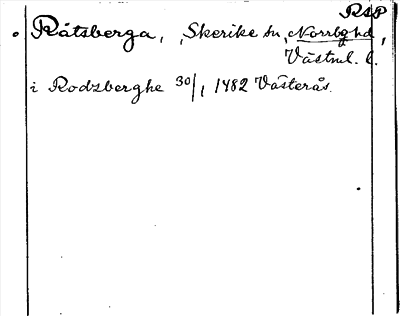 RAP
Råtsberga, Skerike sn, Norrbo hd,
Västml. l.
i Rodzberghe 30/1 1482 Västerås.